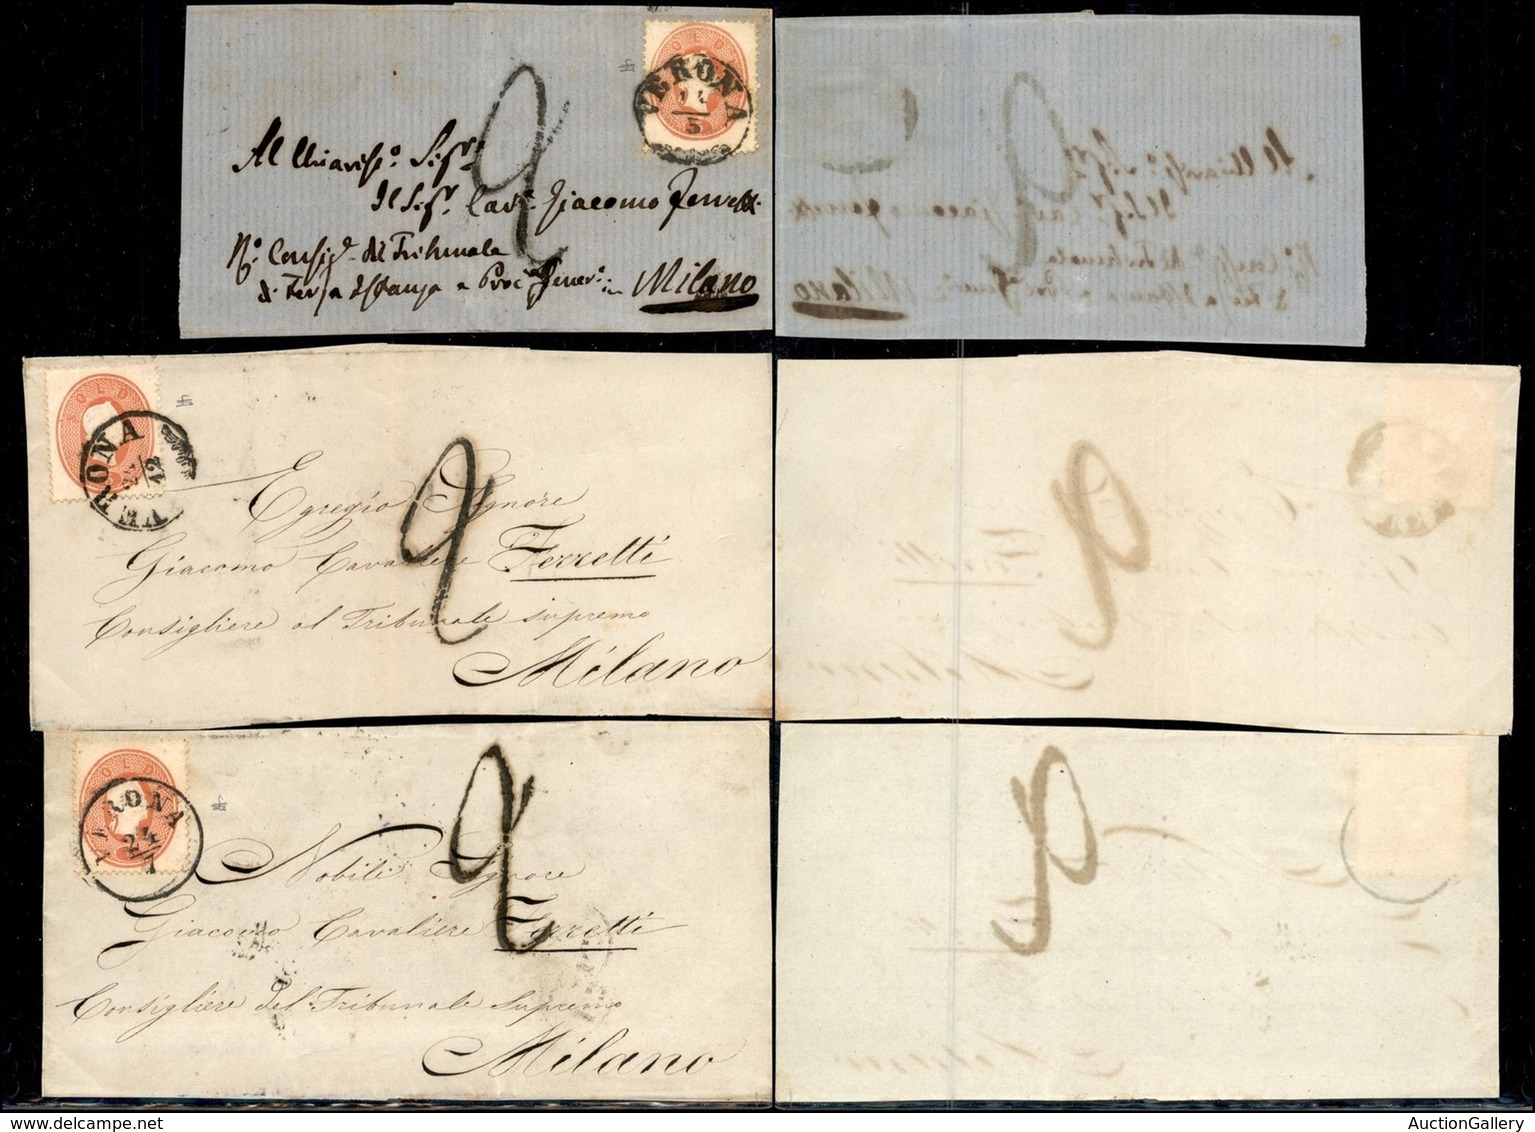 SOLDI
VERONA
14
5
2
Al Chiariss.o Sig.r
Il Sig.r Cav.r Giacomo Ferretti
di Tribunale
in Milano
SOLDI
VERONA
12
2
Egregio Signore
Giacomo Cavaliere Ferretti
Consigliere al Tribunale supremo
Milano
SOLDI
VERONA
24
7
2
Nobile Signore
Giacomo Cavaliere Ferretti
Consigliere del Tribunale Supremo
Milano
www.delcampe.net
AuctionGallery